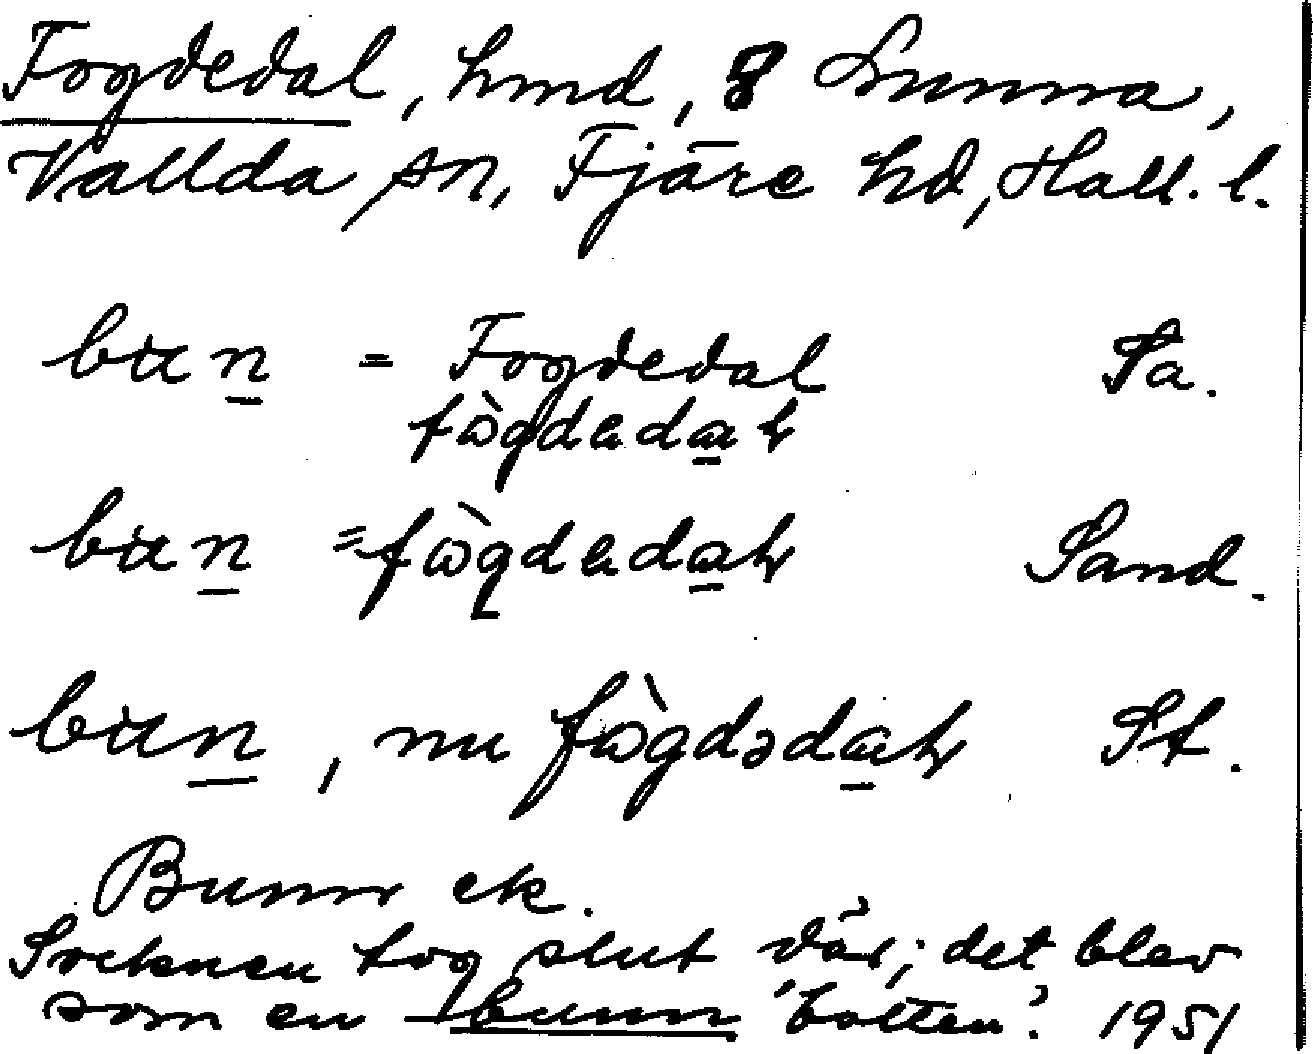 Fogdedal, hmd, 8 Lunna,
Vallda sn, Fjäre hd, Hall. l.
bun = Fogdedal Sa.
fògdedaɫ
bun = fògdedaɫ Sand.
bun, nu fògdədaɫ St.
Bunn ek.
Socknen tog slut där; det blev
som en bunn 'botten'. 1951